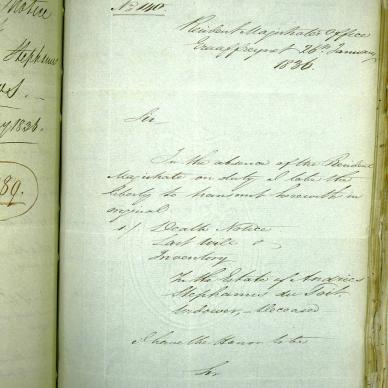 Notice
Stephanus
1836.
89.
No 140.
Resident Magistrate's Office
Graaff Reynet 26th January
1836.
Sir
In the absence of the Resident
Magistrate on duty I take the
liberty to transmit herewith in
original
Death Notice
Last Will &
Inventory
In the Estate of Andries
Stephanus du Toit.
Widower, Deceased
I have the Honor to be
Sir